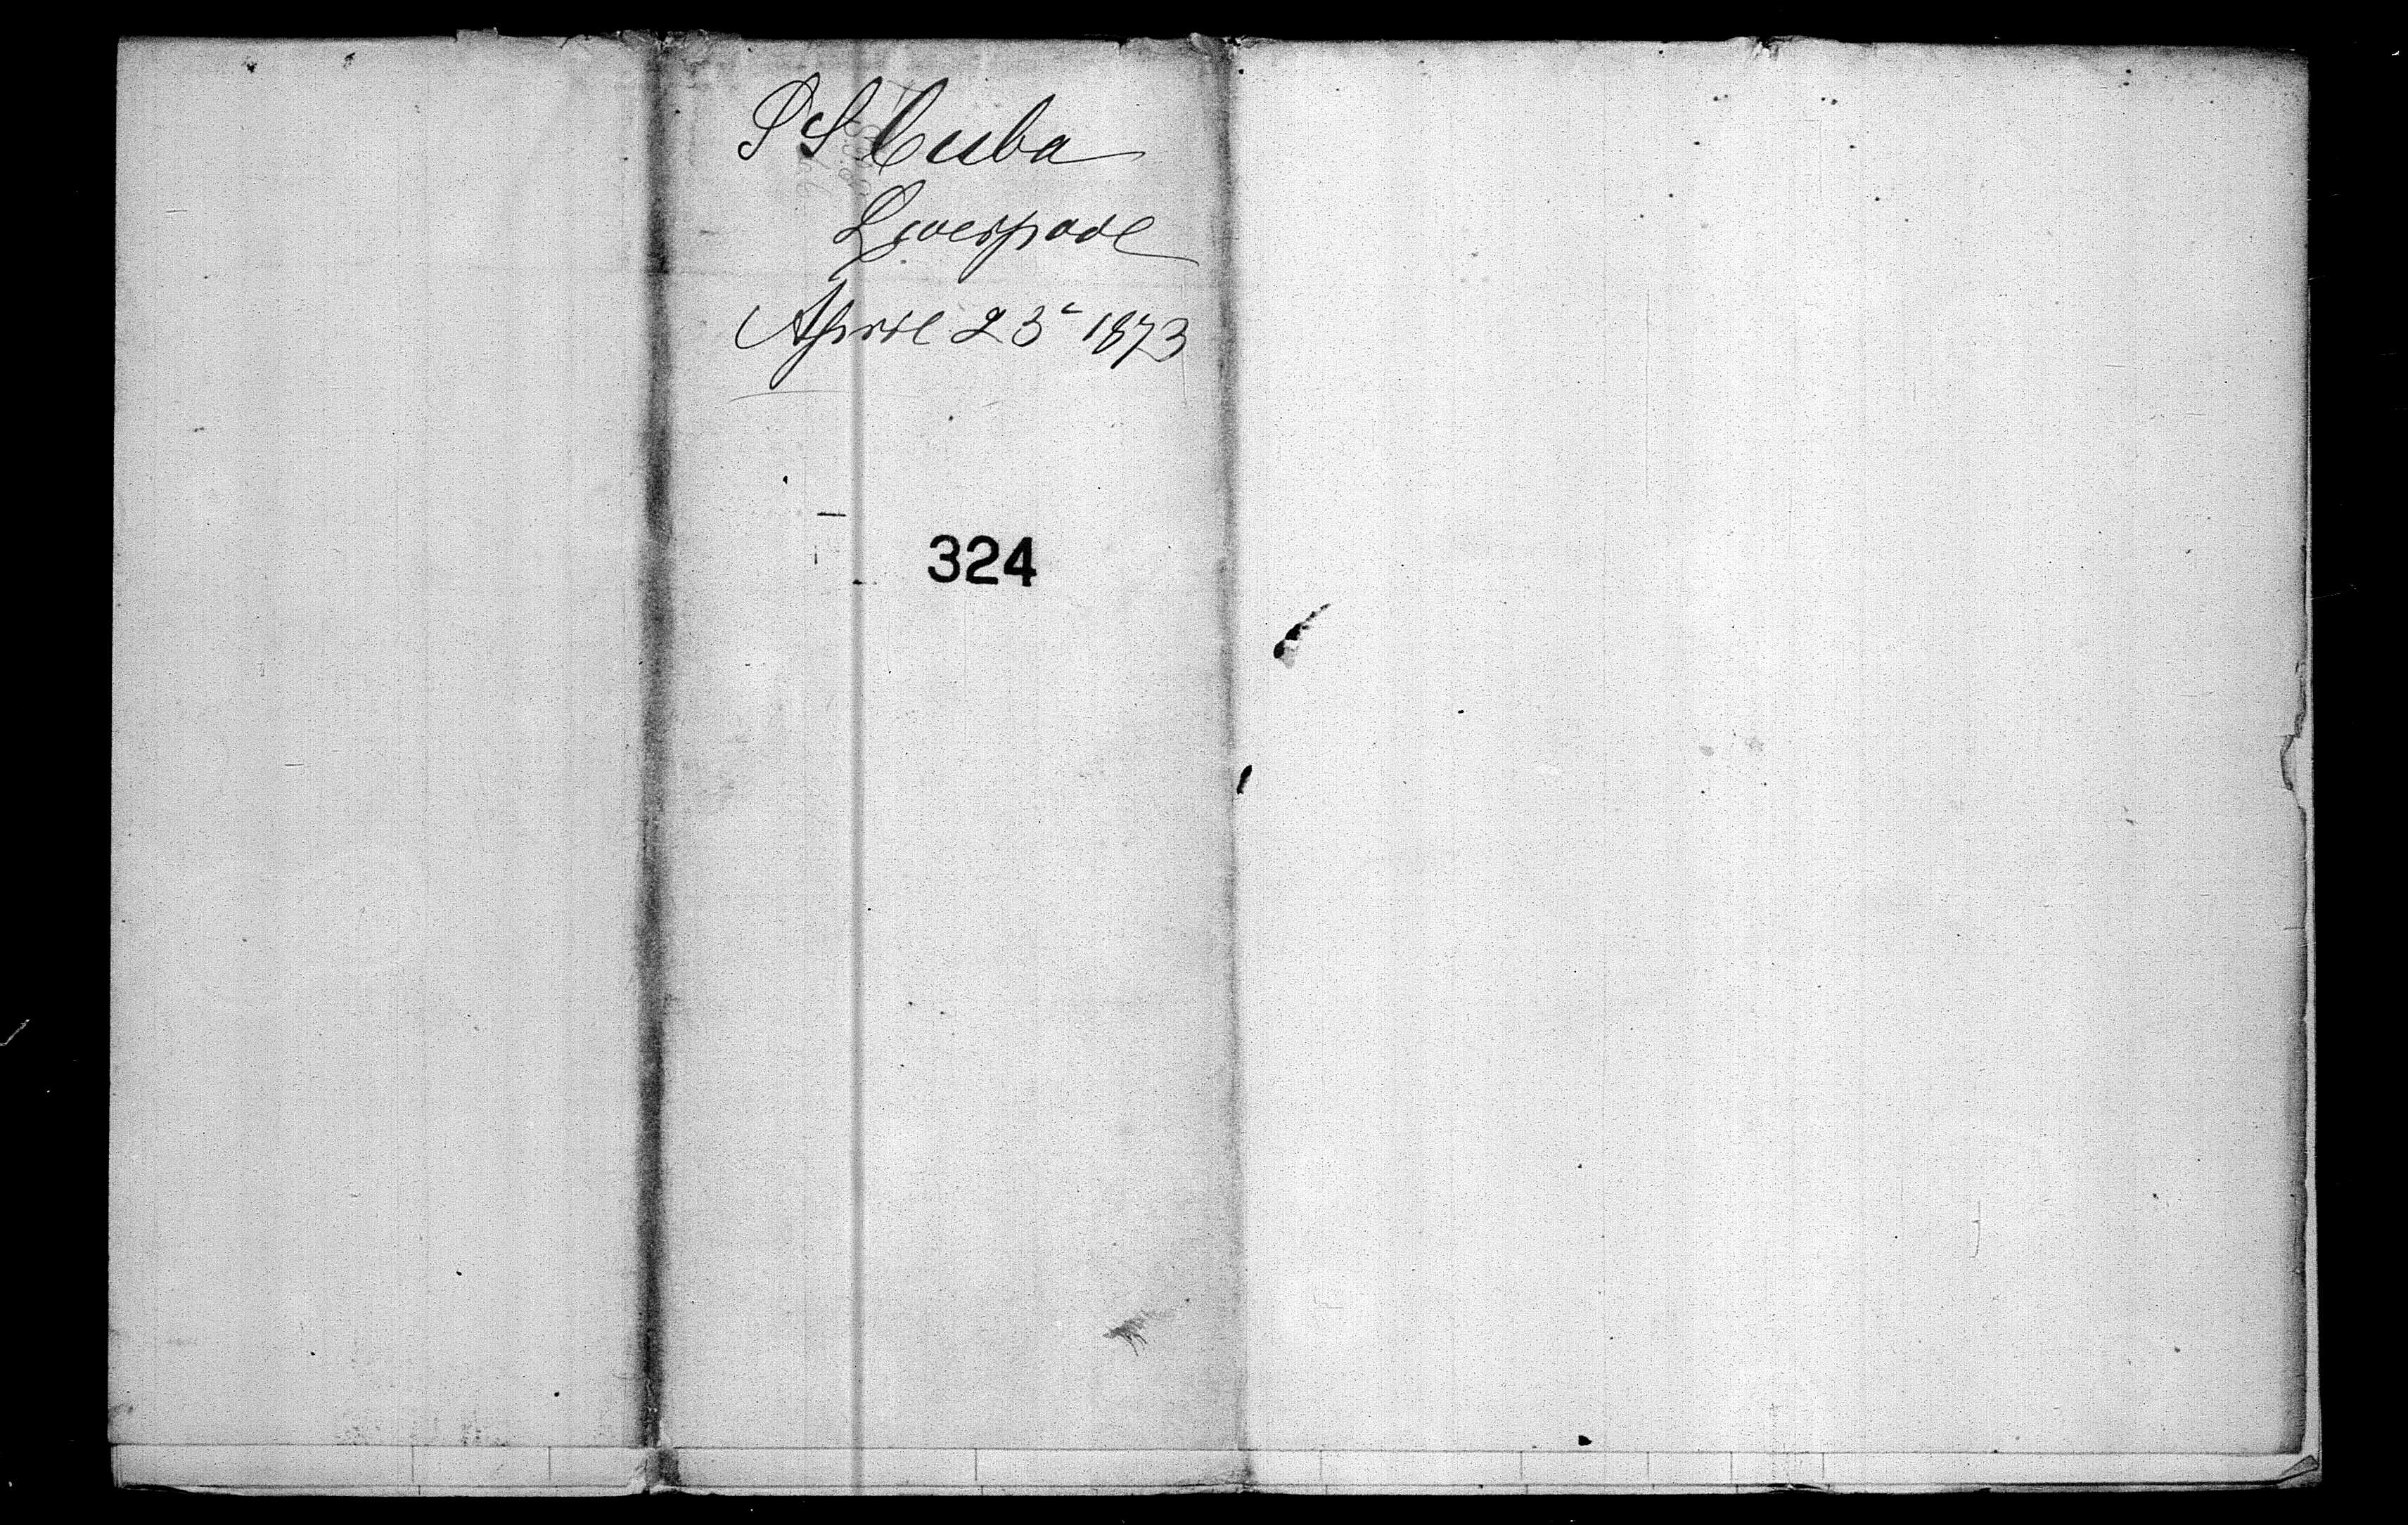 SS Cuba
Liverpool
April 23 1873
324